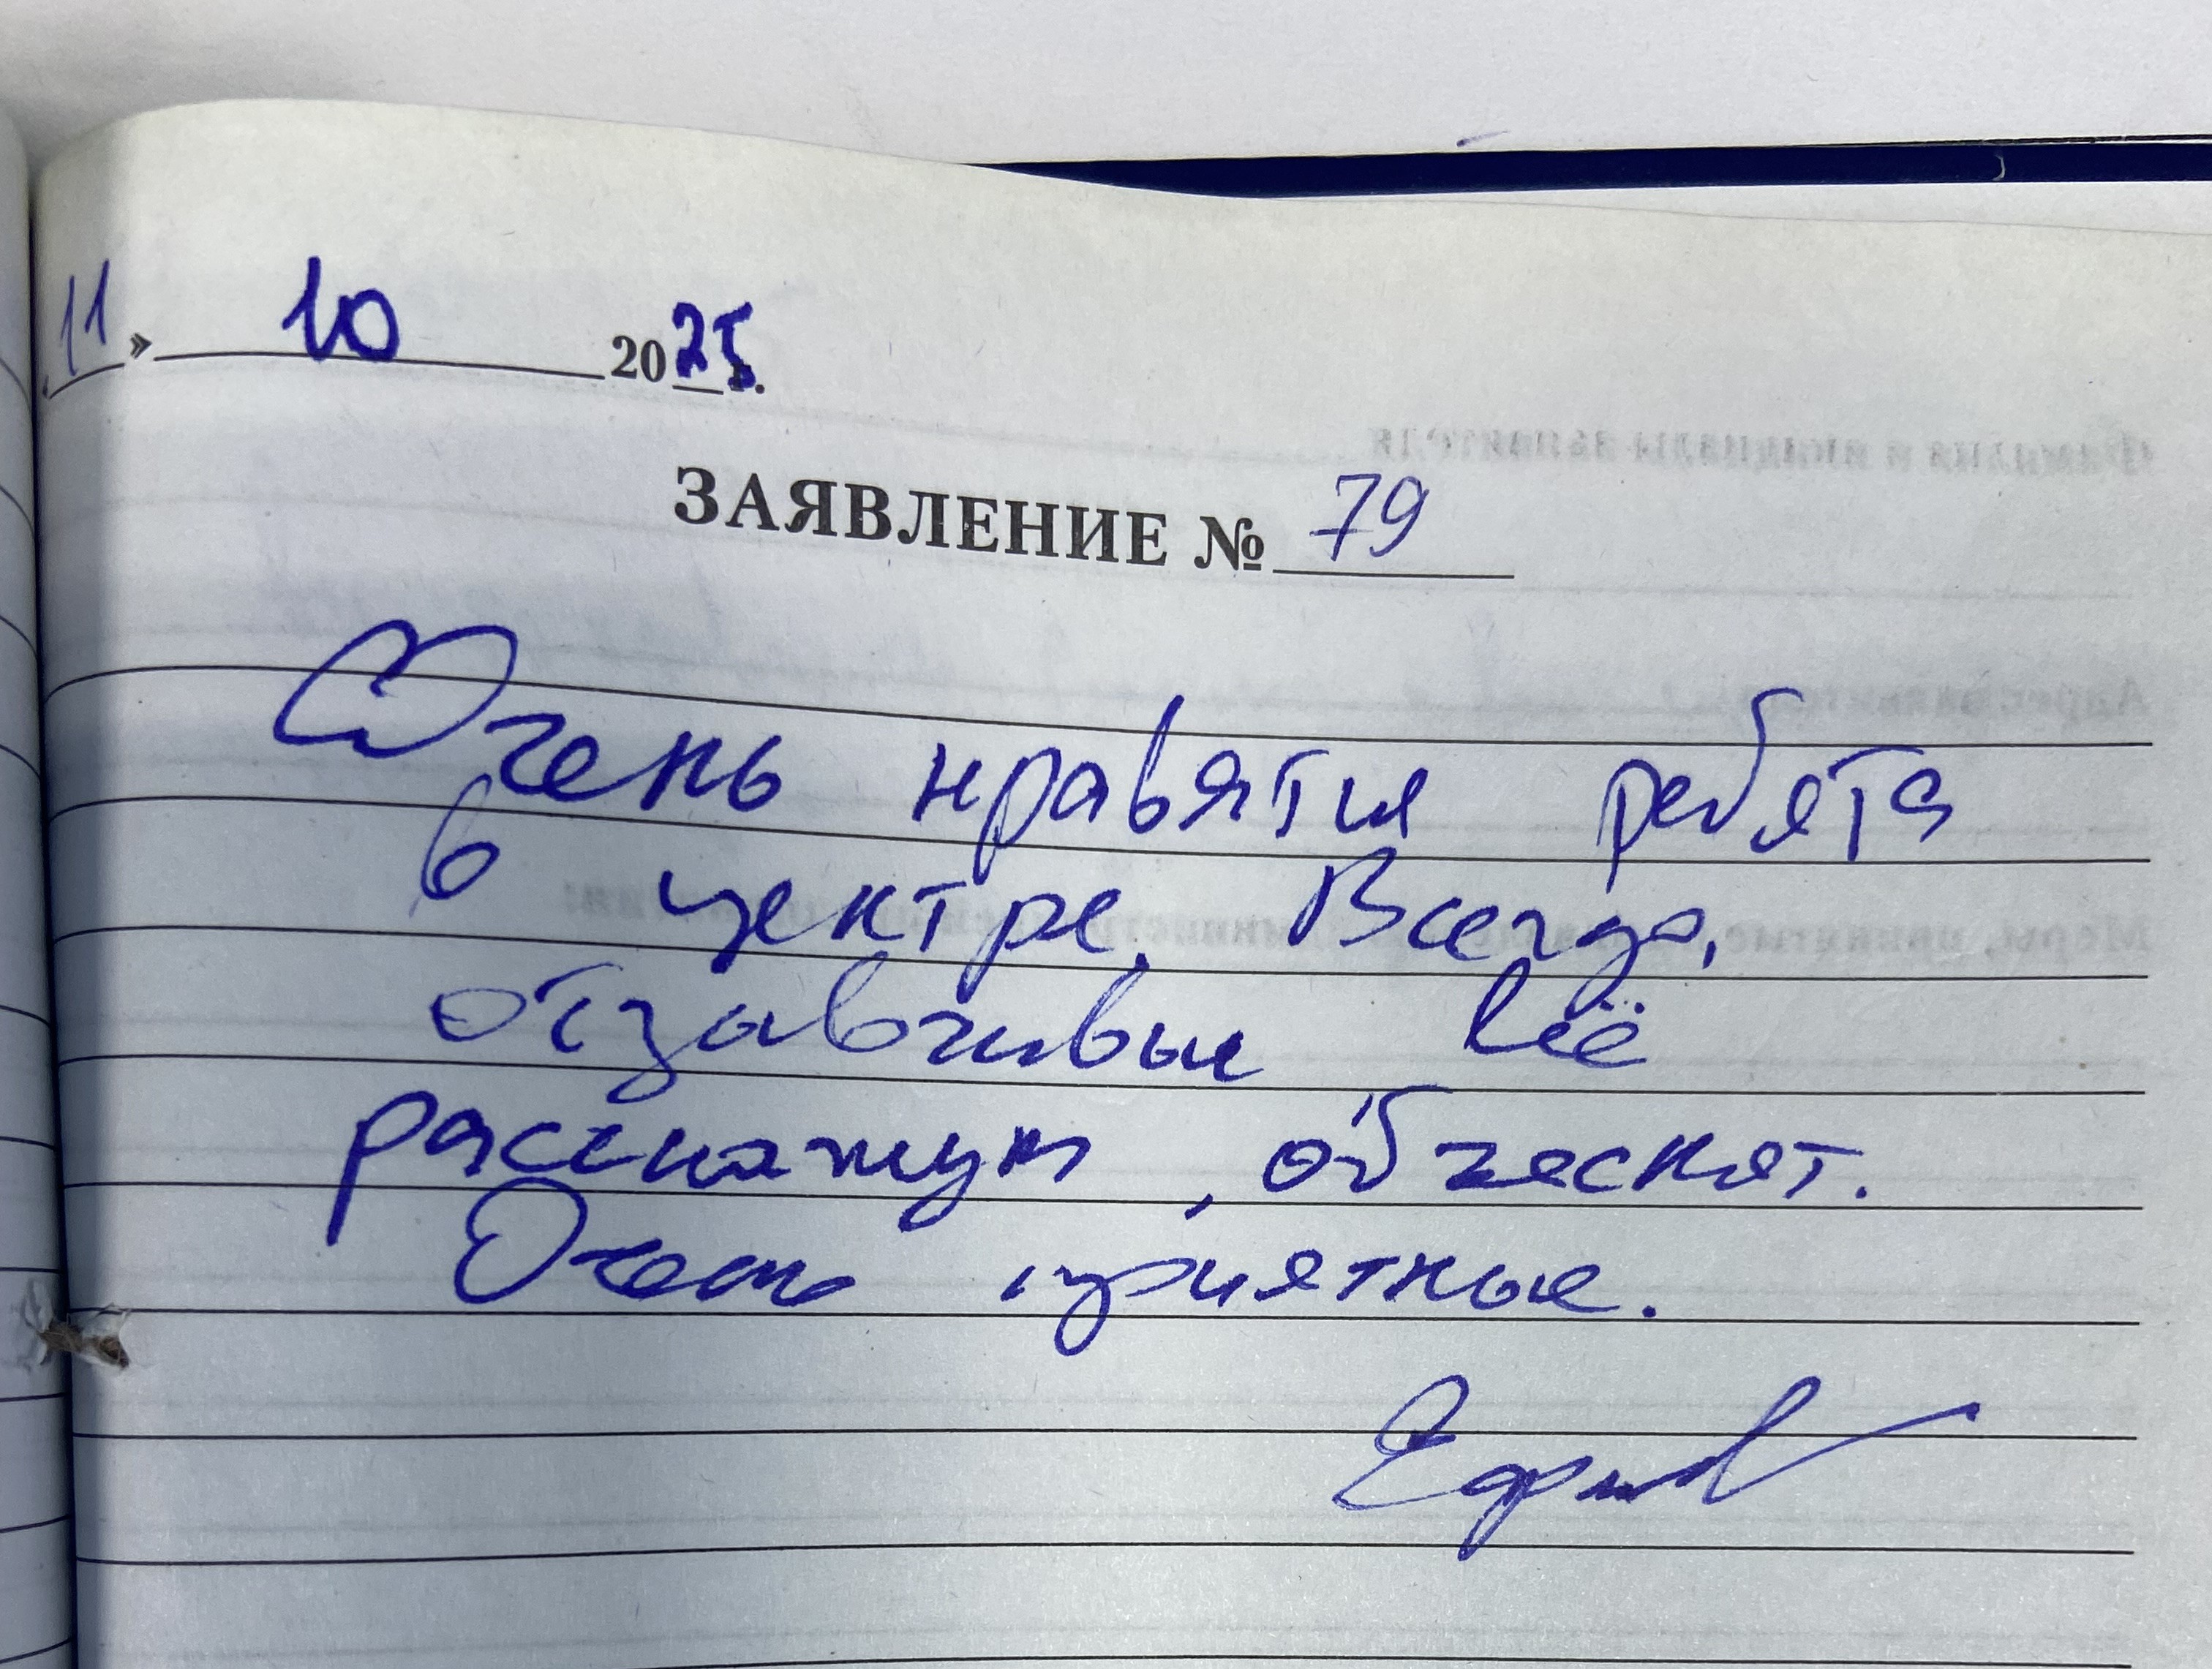 11 » 10 2025.
ЗАЯВЛЕНИЕ № 79
Очень нравятся ребята
в центре. Всегда,
отзавчивые всё
расскажут, объяснят.
Очень приятные.